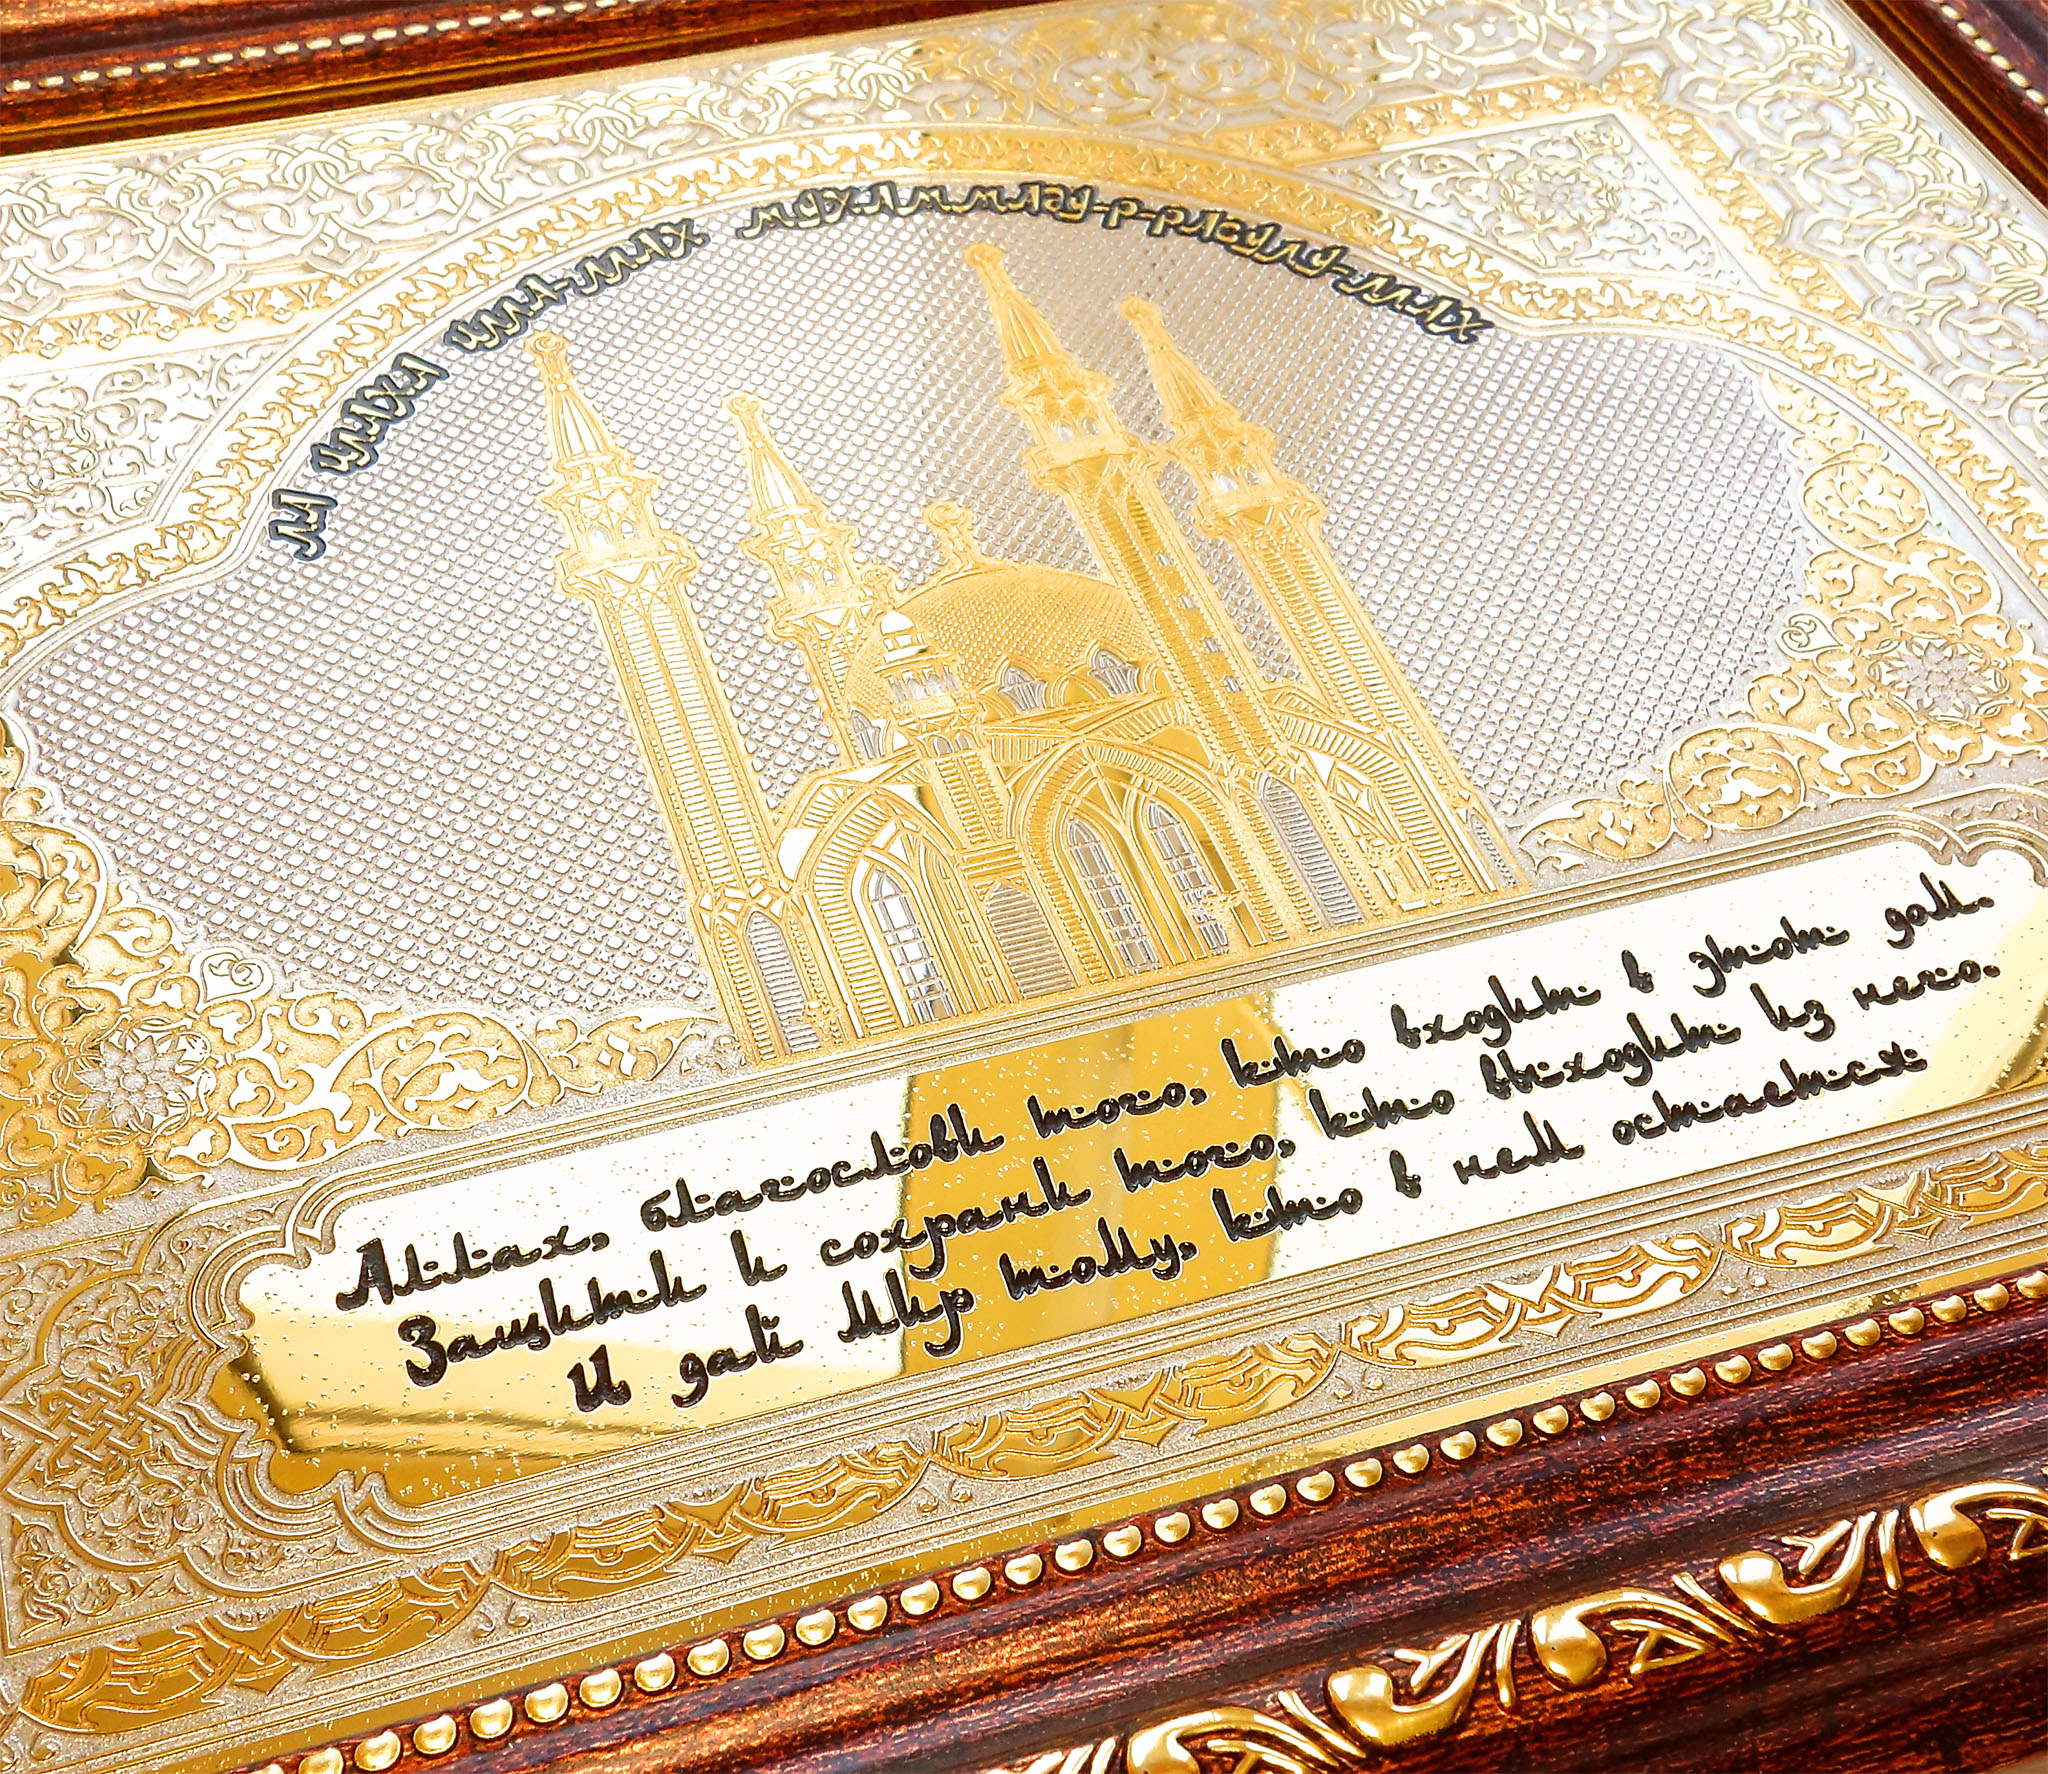 ЛЯ ИЛЯХА ИЛЛА-ЛЛАХ МУХАММАДУ-Р-РАСУЛУ-ЛЛАХ
Аллах, благослови того, кто входит в этот дом.
Защити и сохрани того, кто выходит из него.
И дай мир тому, кто в нем остается